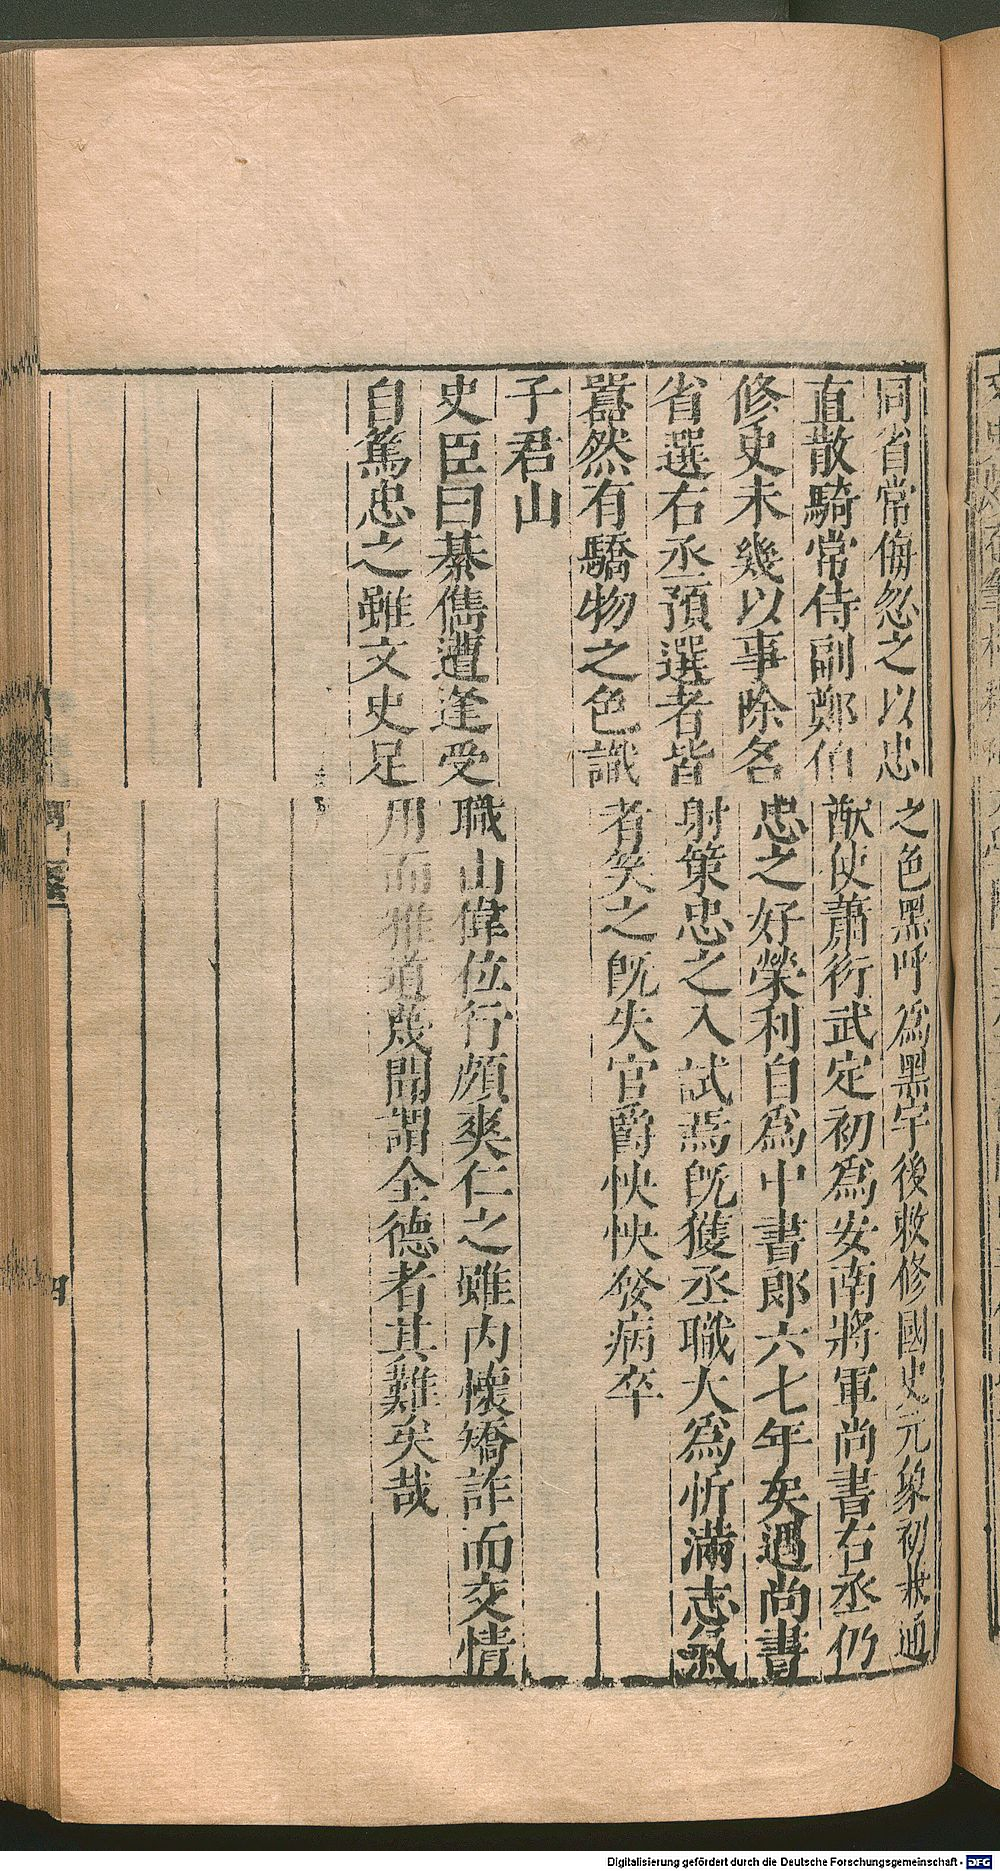 同省常侮忽之以忠之色黑呼爲黑宇後敕修國史元象初兼通
直散騎常侍副鄭伯猷使蕭衍武定初爲安南將軍尚書右丞仍
修史未幾以事除名忠之好榮利自爲中書郎六七年矣遇尚書
省選右丞預選者皆射策忠之入試焉既獲丞職大爲忻滿志氣
囂然有驕物之色識者笑之既失官爵怏怏發病卒
子君山
史臣曰綦儁遭逢受職山偉位行頗爽仁之雖內懷矯詐而交情
自篤忠之雖文史足用而雅道蔑聞謂全德者其難矣哉
四
Digitalisierung gefördert durch die Deutsche Forschungsgemeinschaft - DFG